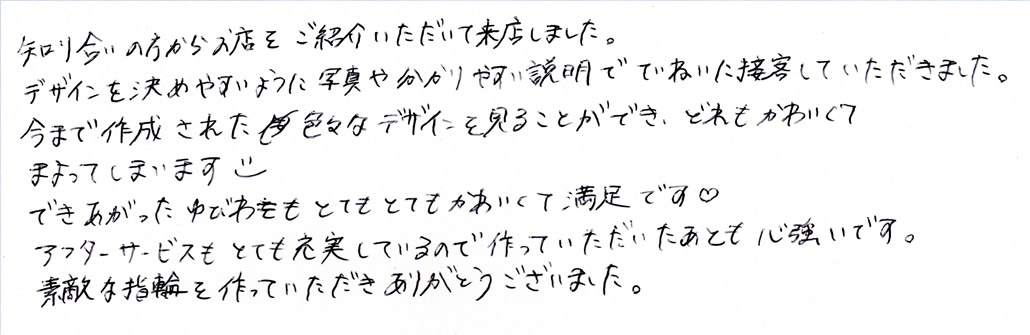 知り合いの方からお店をご紹介いただいて来店しました。
デザインを決めやすいように写真や分かりやすい説明でていねいに接客していただきました。
今まで作成された色々なデザインを見ることができ、どれもかわいくて
まよってしまいます
できあがったゆびわもとてもとてもかわいくて満足です♡
アフターサービスもとても充実しているので作っていただいたあとも心強いです。
素敵な指輪を作っていただきありがとうございました。